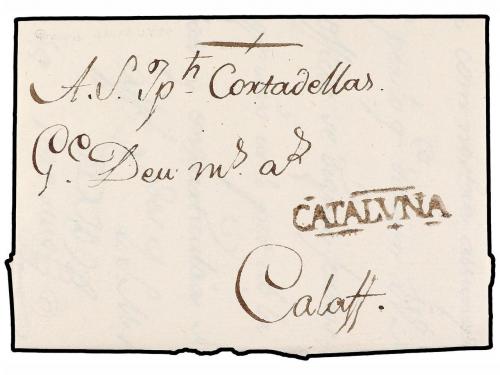 A. S. Jph. Cortadellas.
Ge. Deu ms. as
CATALUNA
Calaff.